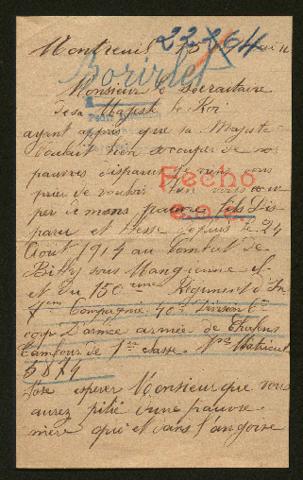 22864
Montreuil 15
Borirdet
Monsieur le Secraitaire
de sa Majesté le Roi
ayant appris que sa Majesté
voulait bien occuper de nos
pauvres disparus je viens vous
prier de vouloir bien vous occu
per de mons pauvre fils dis
paru et blesse depuis le 24
Fecho
Août 1914 au Combat de
Billy sous Mangienne S
et du 150 eme Regiment d'In
7em Compagnie 40e Division 6e
corp D'armée armée de Chalons
Tambour de 1ere classe. No Matricul
5874
J'ose esperer Monsieur que vous
aurez pitié d'une pauvre
mère qui et dans l'angoise